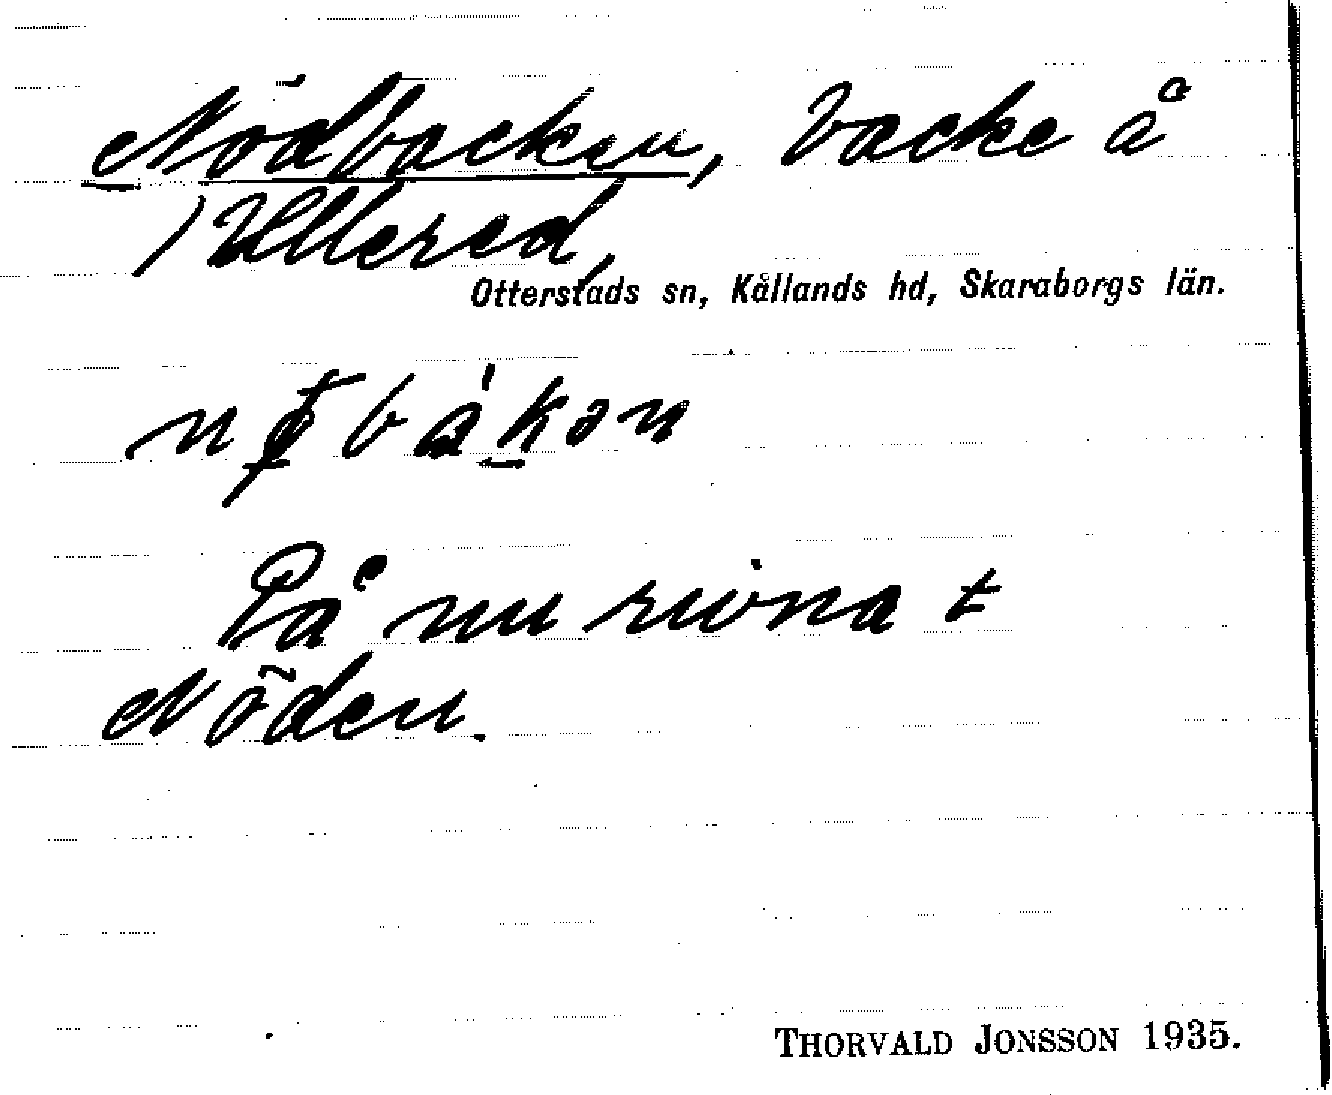 Nödbacken, backe å
/ Ullered,
Otterstads sn, Kållands hd, Skaraborgs län.
På nu rivna t
Nöden.
THORVALD JONSSON 1935.